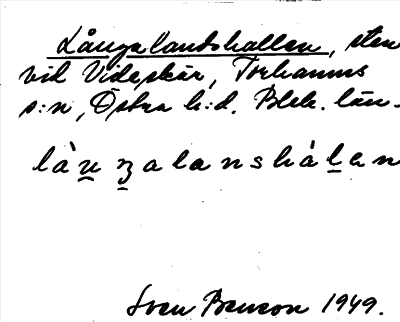 Långalandshallen, sten
vid Videskär, Torhamns
s:n, Östra h:d. Blek. län.
là u̱ ʒ̱ a l a n s h à ḻ e n
Sven Benson 1949.